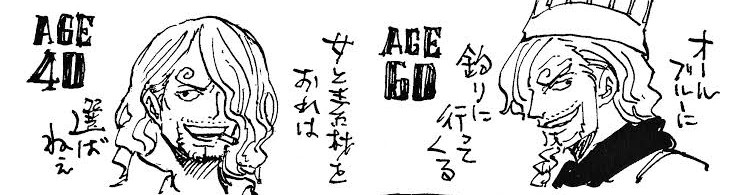 AGE
40
女と素材を
おれは
選ば
ねェ
AGE
60
オール
ブルーに
釣りに
行って
くる